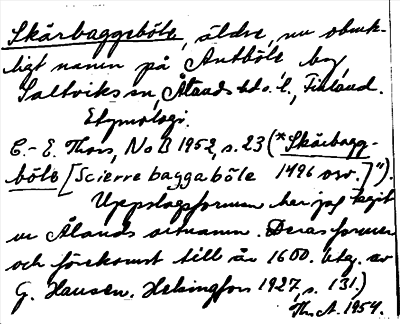 Skärbaggeböle, äldre, nu obruk-
ligt namn på Antböle by
Saltviks sn, Ålands hd o. l., Finland.
Etymologi.
C.-E. Thors, NoB 1952, s. 23 (“*Skärbagg-
böle [Scierrebaggaböle 1496 osv.]”).
Uppslagsformen har jag tagit
ur Ålands ortnamn. Deras former
och förekomst till år 1600. Utg. av
G. Hausen. Helsingfors 1927, s. 131.)
Th. A. 1954.